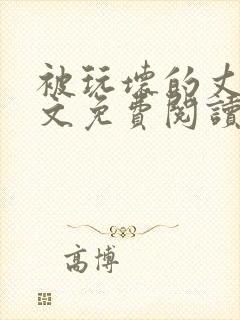 被玩壞的丈
文免費閱讀
高博